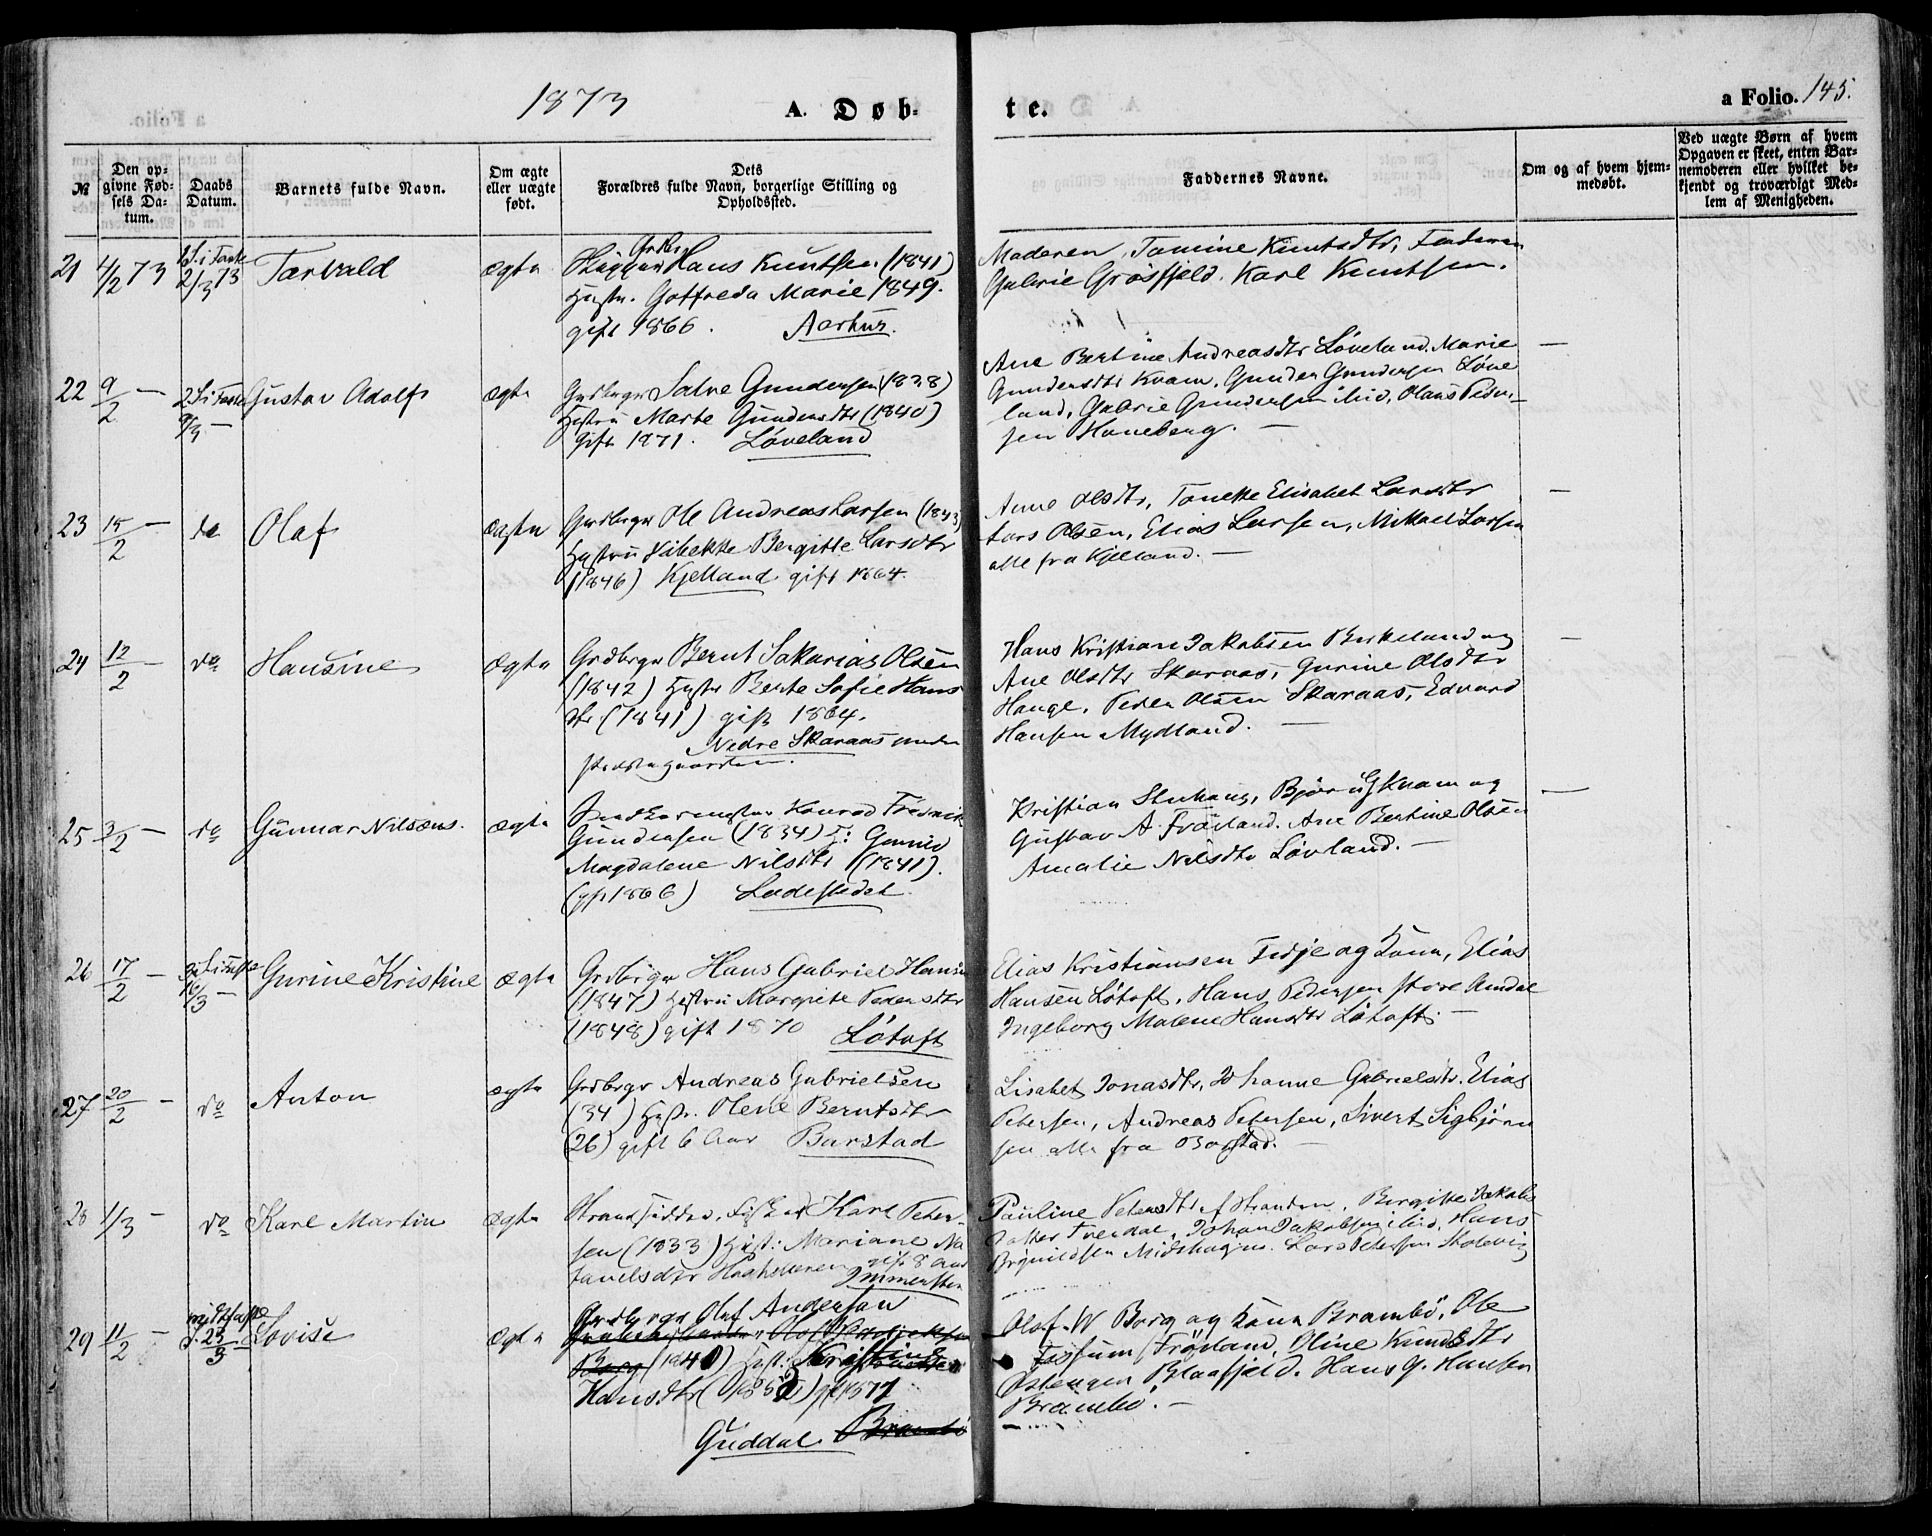 1873
A. Døb-
te.
a Folio. 145.
№
Den opgivne Fødsels Datum.
Daabs Datum.
Barnets fulde Navn.
Om ægte eller uægte født.
Dets Forældres fulde Navn, borgerlige Stilling og Opholdssted.
Faddernes Navne.
Om og af hvem hjemmedøbt.
Ved uægte Børn af hvem Opgaven er skeet, enten Barnemoderen eller hvilket bekjendt og troværdigt Medlem af Menigheden.
21 4/2 73
2/3 73
Tarvald
ægte
Hans Knutsen (1841)
Gotfreda Marie 1849.
gift 1866. Aarhus.
Moderen, Tomine Knutsdtr,
Gabriel Grøsfjeld. Karl Knutsen.
22 9/2 —
2 S i Faste 9/3 —
Gustav Adolf
ægte
Grdbrgr Salve Gundersen (1838)
Hustru Marte Gundersdtr (1840)
Gift 1871. Løveland
Ane Bertine Andreasdtr Løveland. Marie
Gundersdtr Kvam, Gunder Gundersen Løve
land, Gabriel Gundersen ibid, Olaus Peder-
sen Haneberg. —
23 15/2 —
do
Olaf
ægte
Grdbrgr Ole Andreas Larsen (1843)
Hustru Vibekke Bergitte Larsdtr
(1846) Kjelland gift 1864.
Anne Olsdtr, Tonette Elisabet Larsdtr
Lars Olsen, Elias Larsen, Mikael Larsen
alle fra Kjelland. —
24 12/2 —
do
Hansine
ægte
Grdbrgr Bernt Sakarias Olsen
(1842) Hustr Berte Sofie Hans
dtr (1841) gift 1864.
Nedre Skaraas under
Hans Kristian Jakobsen Birkeland og
Ane Olsdtr Skaraas, Gurine Olsdtr
Hauge, Peder Olsen Skaraas, Edvard
Hansen Mydland. —
25 3/2 —
do
Gunnar Nilsæus.
ægte
Konrad Fredrik
Gundersen (1834)
Magdalene Nilsdtr (1841).
(gft 1866) Ladestedet.
Kristian Stuhaug, Kvam og
Gustav A. Frøiland. Ane Bertine Olsen
Amalie Nilsdtr Løvland. —
26 17/2 —
3 S i Faste 16/3 —
Gurine Kristine
ægte
Grdbrgr Hans Gabriel Hansen
(1847) Hustru Margrete Pedersdtr
(1848) gift 1870 Løtoft
Elias Kristiansen Fidje og Kone, Elias
Hansen Løtoft, Hans Pedersen store Amdal
Ingeborg Malene Hansdtr Løtoft. —
27 20/2 —
do
Anton
ægte
Grdbrgr Andreas Gabrielsen
(34) Hustr. Olene Berntsdtr
(26) gift 6 Aar Barstad
Lisabet Jonasdtr, Johanne Gabrielsdtr. Elias
Petersen, Andreas Petersen, Sivert Sigbjørn
sen alle fra Barstad. —
28 1/3 —
do
Karl Martin
ægte
Strandsidder, Fisker Karl Peter-
sen (1833) Hust: Mariane Na
tanelsdtr gift 8 Aar
Immersten
Pauline Petersdtr af Stranden, Bergitte Jakobs
datter Tverdal, Johan Jakobsen ibid, Hans
Lars Petersen
29 11/2 —
Midtfaste S. 23/3
Lovise
ægte
Grdbrgr Olaf Andersen
Berg (1840) Hust: Kristine
Hansdtr (1852) gft 1871
Guddal. Brambø
Olaf W Borg og Kone Brambø, Ole
Fossum Frøiland, Oline Knudsdtr
Østengen Blaafjeld. Hans G. Hansen
Brambø. —